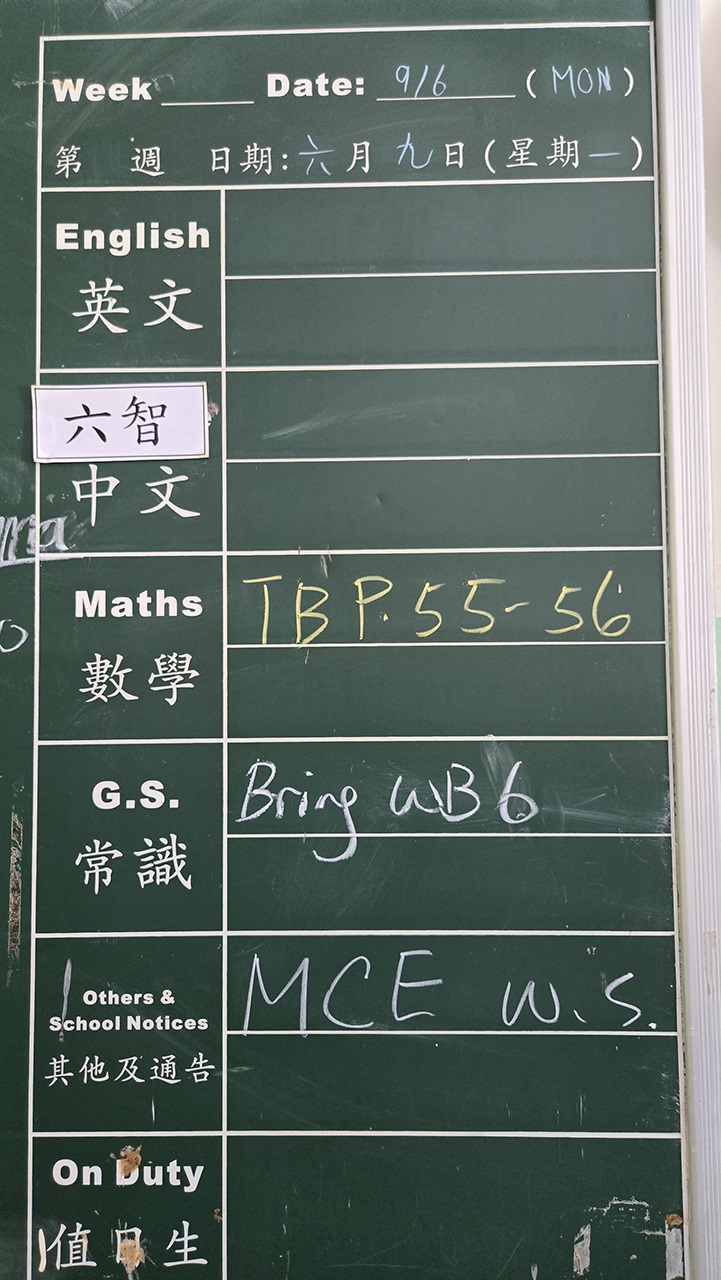 Week ____ Date: 9/6 (MON)
第 週 日期:六月九日(星期一)
English
英文
六智
中文
Maths
TB P.55-56
數學
G.S.
Bring WB6
常識
Others &
School Notices
MCE W.S.
其他及通告
On Duty
值日生